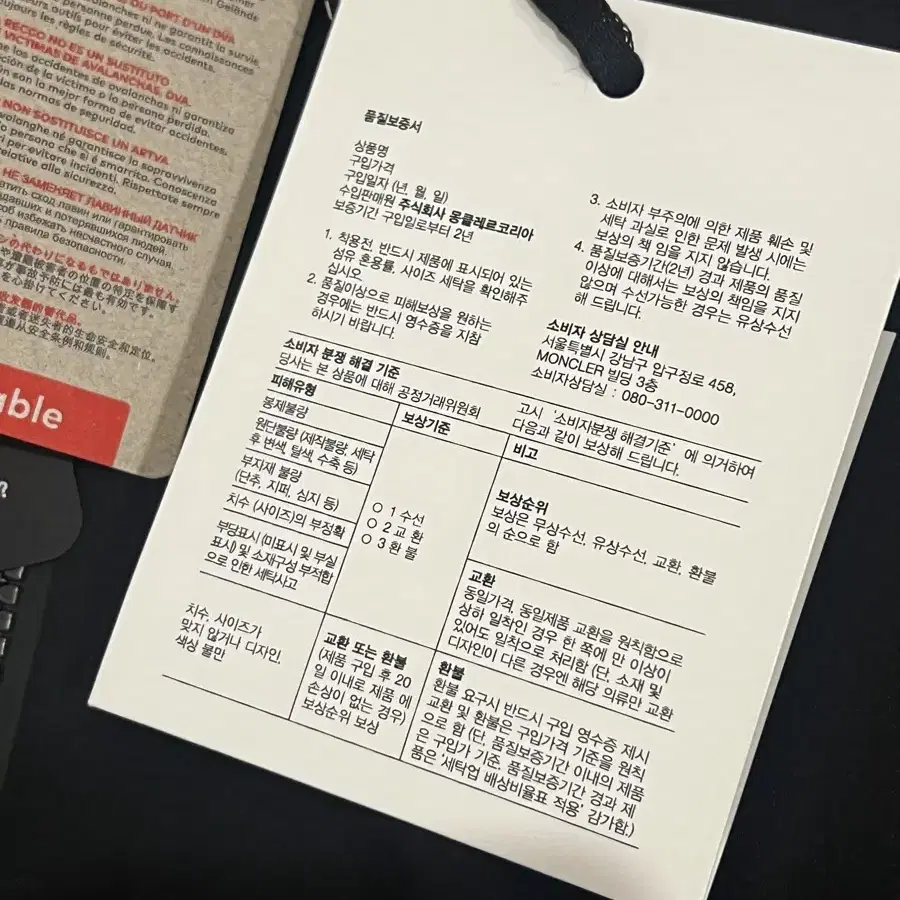 DU PORT D'UN DVA
RECCO NO ES UN SUSTITUTO
VICTIMAS DE AVALANCHAS, DVA.
NON SOSTITUISCE UN ARTVA
НЕ ЗАМЕНЯЕТ ЛАВИННЫЙ ДАТЧИК
able
품질보증서
상품명
구입가격
구입일자 (년, 월, 일)
수입판매원 주식회사 몽클레르코리아
보증기간 구입일로부터 2년
1. 착용전 반드시 제품에 표시되어 있는
섬유 혼용률, 사이즈 세탁을 확인해주
십시오
2. 품질이상으로 피해보상을 원하는
경우에는 반드시 영수증을 지참
하시기 바랍니다.
3. 소비자 부주의에 의한 제품 훼손 및
세탁 과실로 인한 문제 발생 시에는
보상의 책임을 지지 않습니다.
4. 품질보증기간(2년) 경과 제품의 품질
이상에 대해서는 보상의 책임을 지지
않으며 수선가능한 경우는 유상수선
해 드립니다.
소비자 상담실 안내
서울특별시 강남구 압구정로 458,
MONCLER 빌딩 3층
소비자상담실 : 080-311-0000
소비자 분쟁 해결 기준
당사는 본 상품에 대해 공정거래위원회 고시 '소비자분쟁 해결기준' 에 의거하여
다음과 같이 보상해 드립니다.
피해유형
보상기준
비고
봉제불량
원단불량 (제작불량, 세탁
후 변색, 탈색, 수축 등)
부자재 불량
(단추, 지퍼, 심지 등)
치수 (사이즈)의 부정확
부당표시 (미표시 및 부실
표시) 및 소재구성 부적합
으로 인한 세탁사고
○ 1 수선
○ 2 교환
○ 3 환불
보상순위
보상은 무상수선, 유상수선, 교환, 환불
의 순으로 함
교환
동일가격, 동일제품 교환을 원칙함으로
상하 일착인 경우 한 쪽에 만 이상이
있어도 일착으로 처리함 (단, 소재 및
디자인이 다른 경우엔 해당 의류만 교환
치수, 사이즈가
맞지 않거나 디자인,
색상 불만
교환 또는 환불
(제품 구입 후 20
일 이내로 제품 에
손상이 없는 경우)
보상순위 보싱
환불
환불 요구시 반드시 구입 영수증 제시
교환 및 환불은 구입가격 기준을 원칙
으로 함 (단, 품질보증기간 이내의 제품
은 구입가 기준, 품질보증기간 경과 제
품은 '세탁업 배상비율표 적용' 감가함.)